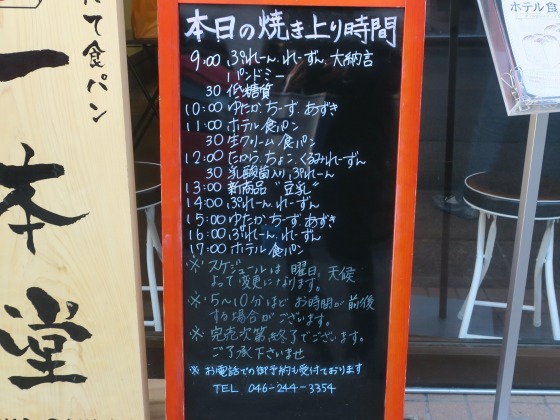 たて食パン
一本堂
本日の焼き上り時間
9:00 ぷれーん、れーずん、大納言
〃 パンドミー
30 低糖質
10:00 ゆたか、ちーず、あずき
11:00 ホテル食パン
30 生クリーム食パン
12:00 たから、ちょこ、くるみれーずん
30 乳酸菌入り、ぷれーん
13:00 新商品 "豆乳"
14:00 ぷれーん、れーずん
15:00 ゆたか、ちーず、あずき
16:00 ぷれーん、れーずん
17:00 ホテル食パン
※ スケジュールは 曜日、天候
よって変更になります。
※ 5〜10分ほど お時間が前後
する場合がございます。
※ 完売次第、終了でございます。
ご了承下さいませ
※ お電話での御予約も受付ております
TEL 046-244-3354
ホテル食